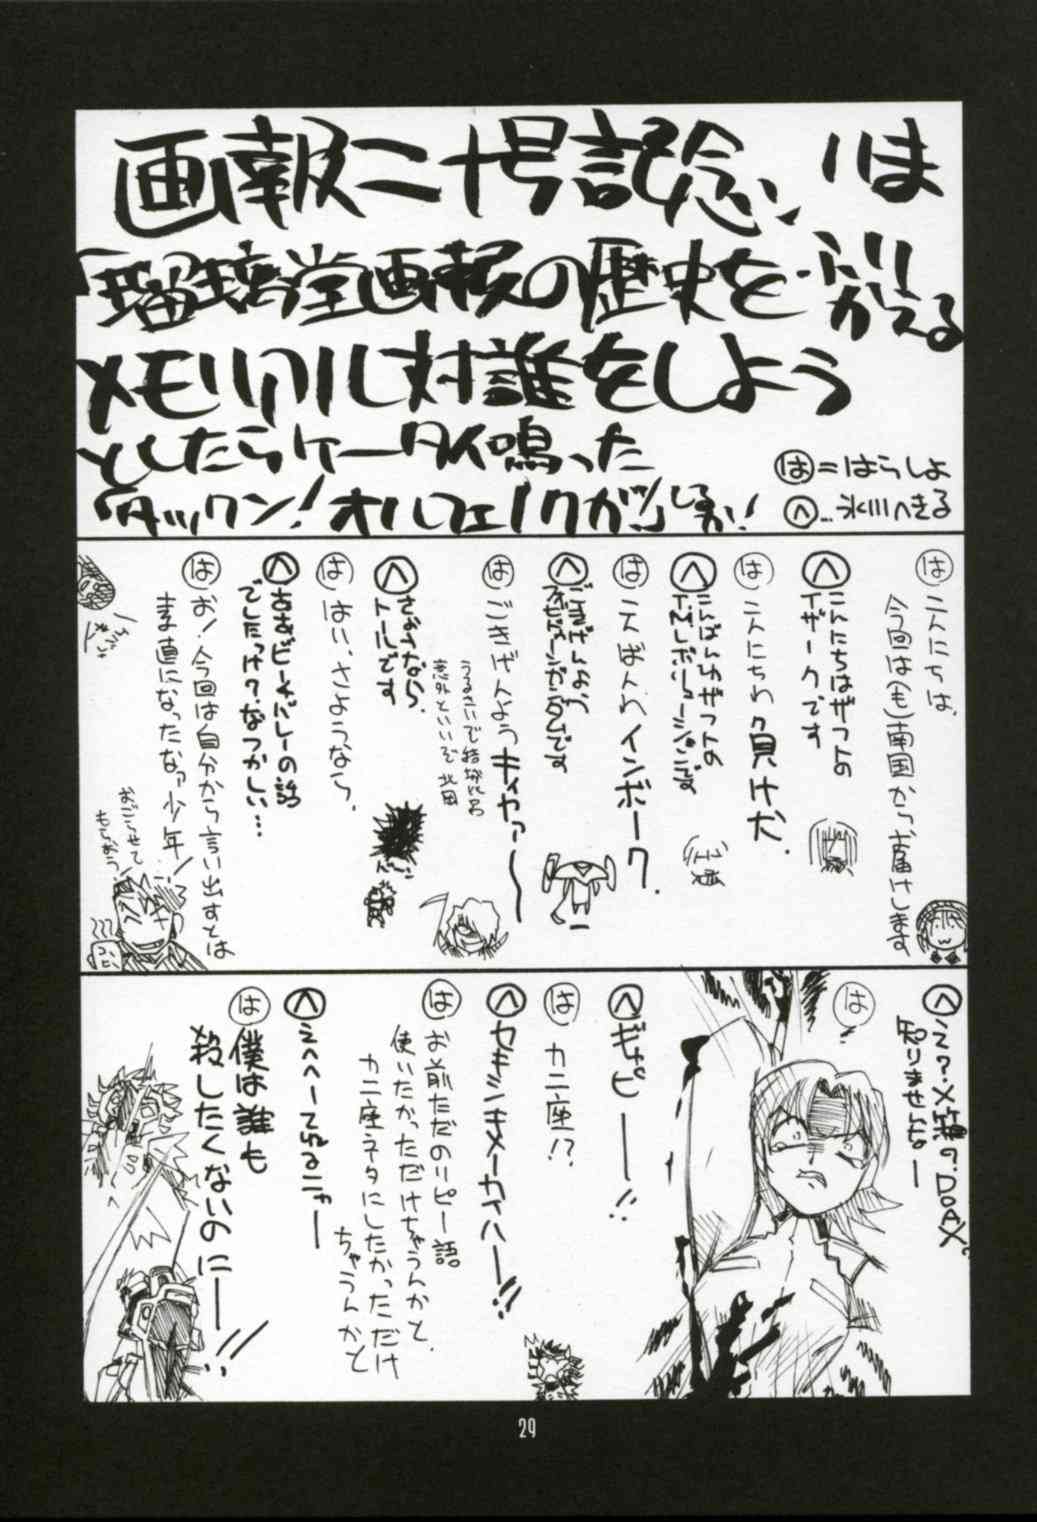 画報二十号記念、いま
「瑠璃堂画報の歴史をふりかえる
メモリアル対談をしよう
としたらケータイ鳴った
タックン!オルフェノクがッ!
は=はらしよ
へ…氷川へきる
は こんにちは、
今回は(も)南国からお届けします
へ こんにちはザフトの
イザークです
は こんにちわ負け犬.
へ こんばんわザフトの
は こんばんわインポーク.
へ ごきげんよう
は ごきげんようキャァァ〜
意外といいぞ北田
へ さようなら.
トールです
は はい、さようなら.
へ 古古ビーバレーの話
でしたっけ?なつかしい…
は お!今回は自分から言い出すとは
ま直になったなァ少年!
おごらせて
もらおう!
へ え?メ箱の?DOAX?
知りませんなー
は !!
へ ギャピーー!!
は カニ座!?
へ セキシキメーカイハーー!!
は お前ただのリピー語
使いたかっただけちゃうんかと.
カニ座ネタにしたかっただけ
ちゃうんかと
へ えへへーてれるニャー
は 僕は誰も
殺したくないのにーー!!
29